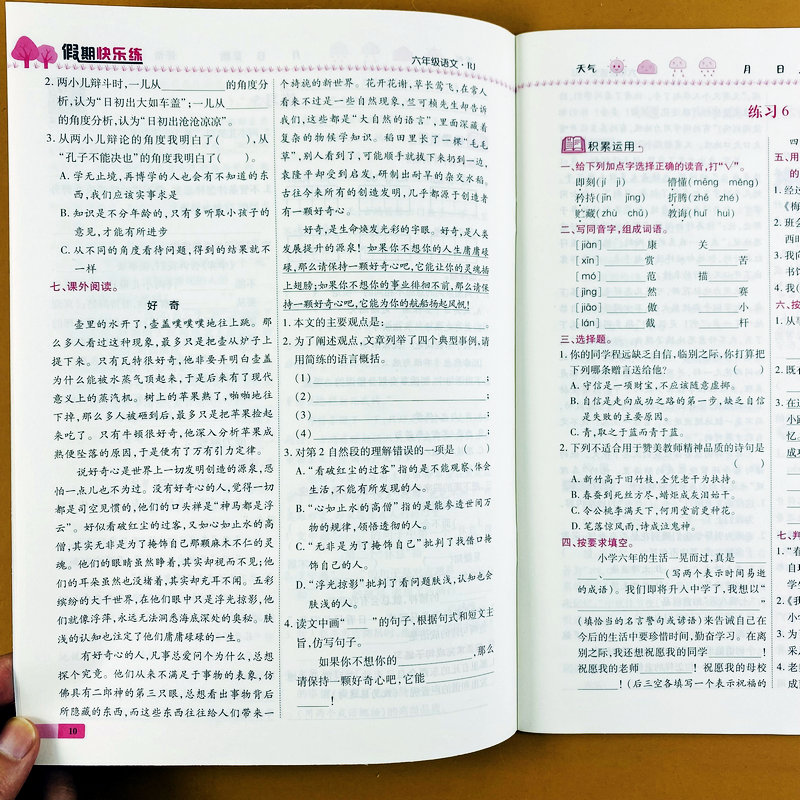 假期快乐练
六年级语文·RJ
2. 两小儿辩斗时,一儿从________的角度分
析,认为“日初出大如车盖”;一儿从________
的角度分析,认为“日初出沧沧凉凉”。
3. 从两小儿辩论的角度我明白了(　　),从
“孔子不能决也”的角度我明白了(　　)。
A. 学无止境,再博学的人也会有不知道的东
西,我们应该实事求是
B. 知识是不分年龄的,只有多听取小孩子的
意见,才能有所进步
C. 从不同的角度看待问题,得到的结果就不
一样
七、课外阅读。
好 奇
壶里的水开了,壶盖噗噗噗地往上跳。那
么多人看过这种现象,最多只是把壶从炉子上
提下来。只有瓦特很好奇,他非要弄明白壶盖
为什么能被水蒸气顶起来,于是后来有了现代
意义上的蒸汽机。树上的苹果熟了,啪啪地往
下掉,那么多人被砸到后,最多只是把苹果捡起
来吃了。只有牛顿很好奇,他深入分析苹果成
熟便坠落的原因,于是便有了万有引力定律。
说好奇心是世界上一切发明创造的源泉,恐
怕一点儿也不为过。没有好奇心的人,觉得一切
都是司空见惯的,他们的口头禅是“神马都是浮
云”。好似看破红尘的过客,又如心如止水的高
僧,其实无非是为了掩饰自己那颗麻木不仁的灵
魂。他们的眼睛虽然睁着,其实却视而不见;他
们的耳朵虽然也没堵着,其实却充耳不闻。五彩
缤纷的大千世界,在他们眼中只是浮光掠影,他
们就像浮萍,永远无法洞悉海底深处的奥秘。肤
浅的认知也注定了他们庸庸碌碌的一生。
有好奇心的人,凡事总爱问个为什么,总想
探个究竟。他们从来不满足于事物的表象,仿
佛具有二郎神的第三只眼,总想看出事物背后
所隐藏的东西,而这些东西往往给人们带来一
10
个旖旎的新世界。花开花谢,草长莺飞,在常人
看来不过是一些自然现象,竺可桢先生却告诉
我们,这些都是“大自然的语言”,里面深藏着
复杂的物候学知识。稻田里长了一棵“毛毛
草”,别人看到了,可能顺手就拔下来扔到一边,
袁隆平却受到启发,研制出耐旱的杂交水稻。
古往今来所有的创造发明,几乎都源于创造者
有一颗好奇心。
好奇,是生命焕发光彩的字眼。好奇,是人类
发展提升的源泉!如果你不想你的人生庸庸碌
碌,那么请保持一颗好奇心吧,它能让你的灵魂插
上翅膀;如果你不想你的事业徘徊不前,那么请保
持一颗好奇心吧,它能为你的航船扬起风帆!
1. 本文的主要观点是:________________。
2. 为了阐述观点,文章列举了四个典型事例,请
用简练的语言概括。
(1)________________;
(2)________________;
(3)________________;
(4)________________。
3. 对第 2 自然段的理解错误的一项是 (　　)
A. “看破红尘的过客”指的是不能观察、体会
生活,不能有所发现的人。
B. “心如止水的高僧”指的是能参透世间万
物的规律,领悟透彻的人。
C. “无非是为了掩饰自己”批判了找借口掩
饰自己的人。
D. “浮光掠影”批判了看问题肤浅,认知也会
肤浅的人。
4. 读文中画“____”的句子,根据句式和短文主
旨,仿写句子。
如果你不想你的____________,那么
请保持一颗好奇心吧,它能____________
________!
天气
月 日
练习6
积累运用
一、给下列加点字选择正确的读音,打“√”。
即刻(jí jì) 懵懂(měng méng)
矜持(jīn jīng) 折腾(zhē zhé)
贮藏(zhù chǔ) 教诲(huǐ huì)
二、写同音字,组成词语。
[jiàn] 康 关
[xīn] 赏 苦
[mó] 范 描
[jìng] 然 赛
[jiāo] 傲 小
[lán] 截 杆
三、选择题。
1. 你的同学程远缺乏自信,临别之际,你打算把
下列哪条赠言送给他? (　　)
A. 守信是一项财宝,不应该随意虚掷。
B. 自信是走向成功之路的第一步,缺乏自信
是失败的主要原因。
C. 青,取之于蓝而青于蓝。
2. 下列不适合用于赞美教师精神品质的诗句是
(　　)
A. 新竹高于旧竹枝,全凭老干为扶持。
B. 春蚕到死丝方尽,蜡炬成灰泪始干。
C. 令公桃李满天下,何用堂前更种花。
D. 笔落惊风雨,诗成泣鬼神。
四、按要求填空。
小学六年的生活一晃而过,真是______
______、____________(写两个表示时间易逝
的成语)。我们即将升入中学了,我想以“____
________________”
(填恰当的名言警句或谚语)来告诫自己在
今后的生活中要珍惜时间,勤奋学习。在离
别之际,我还想祝愿我的同学____________!
祝愿我的老师____________!祝愿我的母校
____________!(后三空各填写一个表示祝福的
五、用
1. 经过
2. 班会
3. 我向
4. 我们
六、按
1. 从事
2. 既
3. 在这
七、判